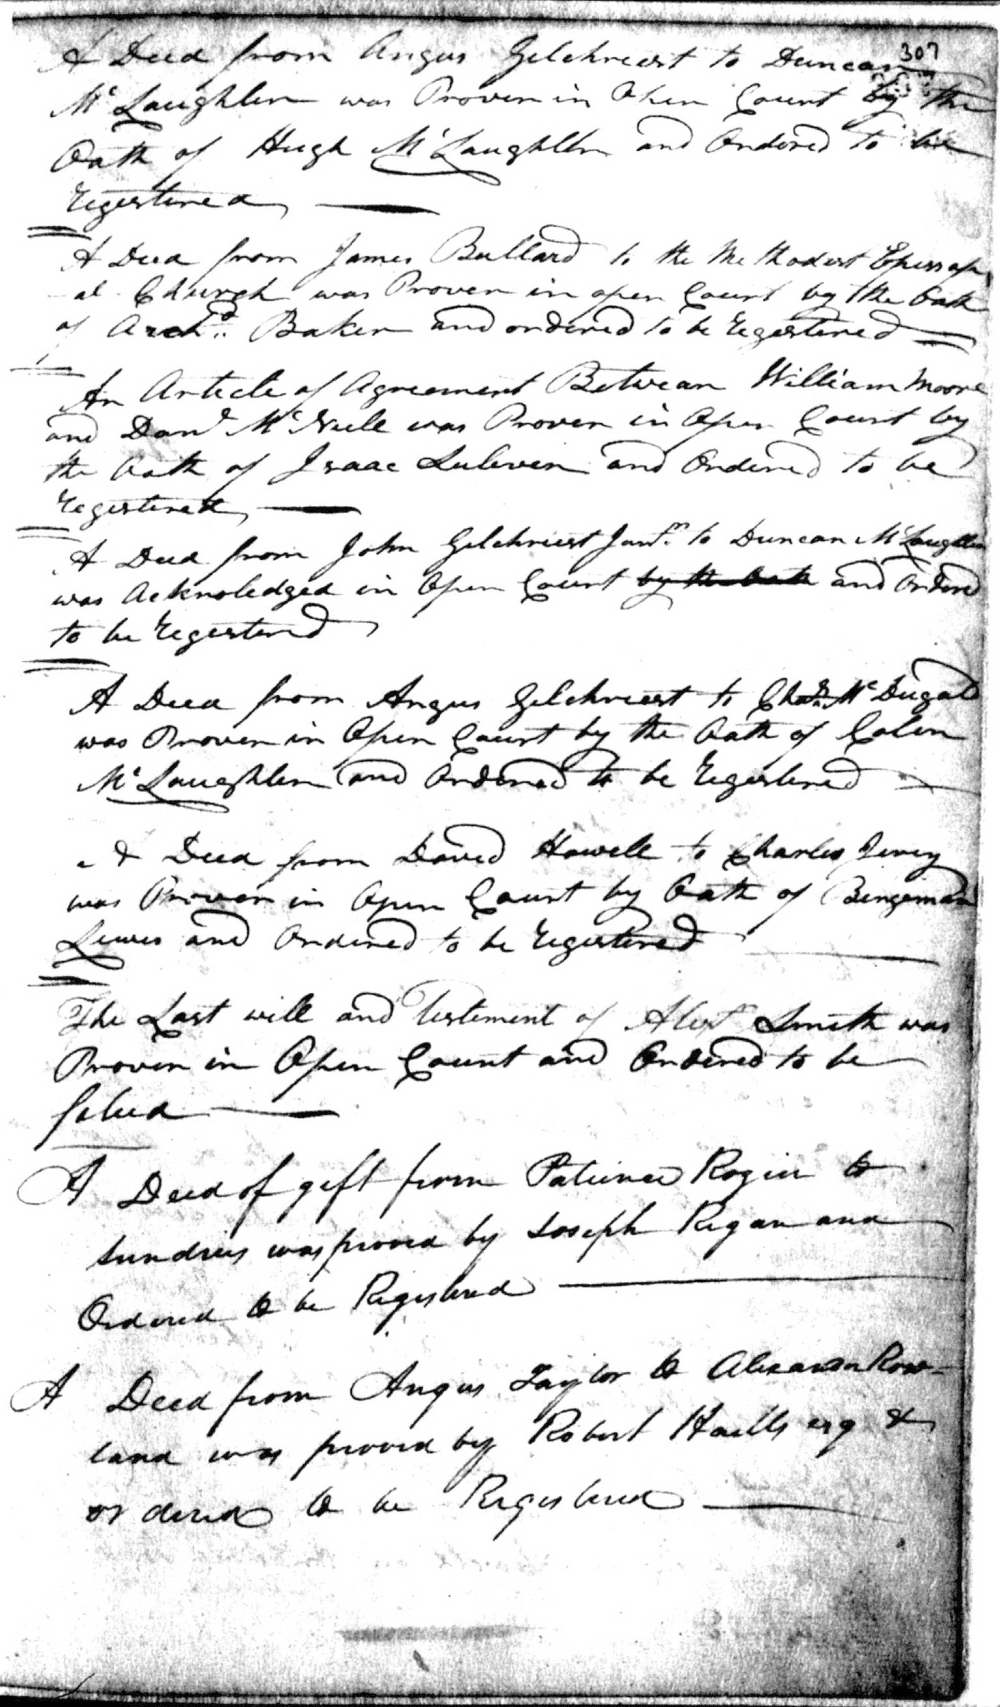 307
A Deed from Angus Gilchriest to Duncan
Mc Laughlin was Proven in Open Court by the
Oath of Hugh Mc Laughlin and Ordered to be
Registered
A Deed from James Bullard to the Methodist Episcop
al Church was Proven in open Court by the Oath
of Archd. Baker and ordered to be Registered
An Article of Agreement Between William Moore
and Danl Mc Neill was Proven in Open Court by
the Oath of Isaac and Ordered to be
Registered
A Deed from John Gilchriest Junr. to Duncan Mc Laughlin
was Acknoledged in Open Court by the Oath and Ordered
to be Registered
A Deed from Angus Gilchriest to Mc Dugald
was Proven in Open Court by the Oath of Colin
Mc Laughlin and Ordered to be Registered
A Deed from David Howell to Charles
was Proven in Open Court by Oath of Bengeman
Lewis and Ordered to be Registered
The Last will and Testiment of Alexr Smith was
Proven in Open Court and Ordered to be
A Deed of gift from to
sundries was proved by Joseph Regan and
Ordered to be Registered
A Deed from Angus Taylor to Alexander Row-
land was proved by Robert esq &
ordered to be Registered